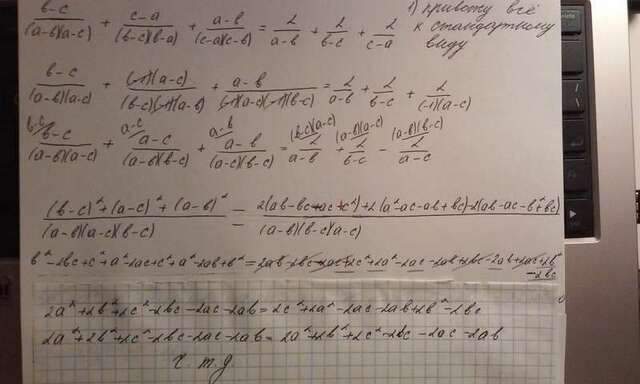 (b-c)/((a-b)(a-c)) + (c-a)/((b-c)(b-a)) + (a-b)/((c-a)(c-b)) = 2/(a-b) + 2/(b-c) + 2/(c-a) 1) привожу всё
к стандартному
виду
(b-c)/((a-b)(a-c)) + (-1)(a-c)/((b-c)(-1)(a-b)) + (a-b)/((-1)(a-c)(-1)(b-c)) = 2/(a-b) + 2/(b-c) + 2/((-1)(a-c))
b-c a-c a-b (b-c)(a-c) (a-b)(a-c) (a-b)(b-c)
(b-c)/((a-b)(a-c)) + (a-c)/((a-b)(b-c)) + (a-b)/((a-c)(b-c)) = 2/(a-b) + 2/(b-c) - 2/(a-c)
((b-c)²+(a-c)²+(a-b)²)/((a-b)(a-c)(b-c)) = (2(ab-bc-ac+c²)+2(a²-ac-ab+bc)-2(ab-ac-b²+bc))/((a-b)(b-c)(a-c))
b²-2bc+c²+a²-2ac+c²+a²-2ab+b²=2ab-2bc-2ac+2c²+2a²-2ac-2ab+2bc-2ab+2ac+2b²
-2bc
2a²+2b²+2c²-2bc-2ac-2ab=2c²+2a²-2ac-2ab+2b²-2bc
2a²+2b²+2c²-2bc-2ac-2ab=2a²+2b²+2c²-2bc-2ac-2ab
ч. т. д.